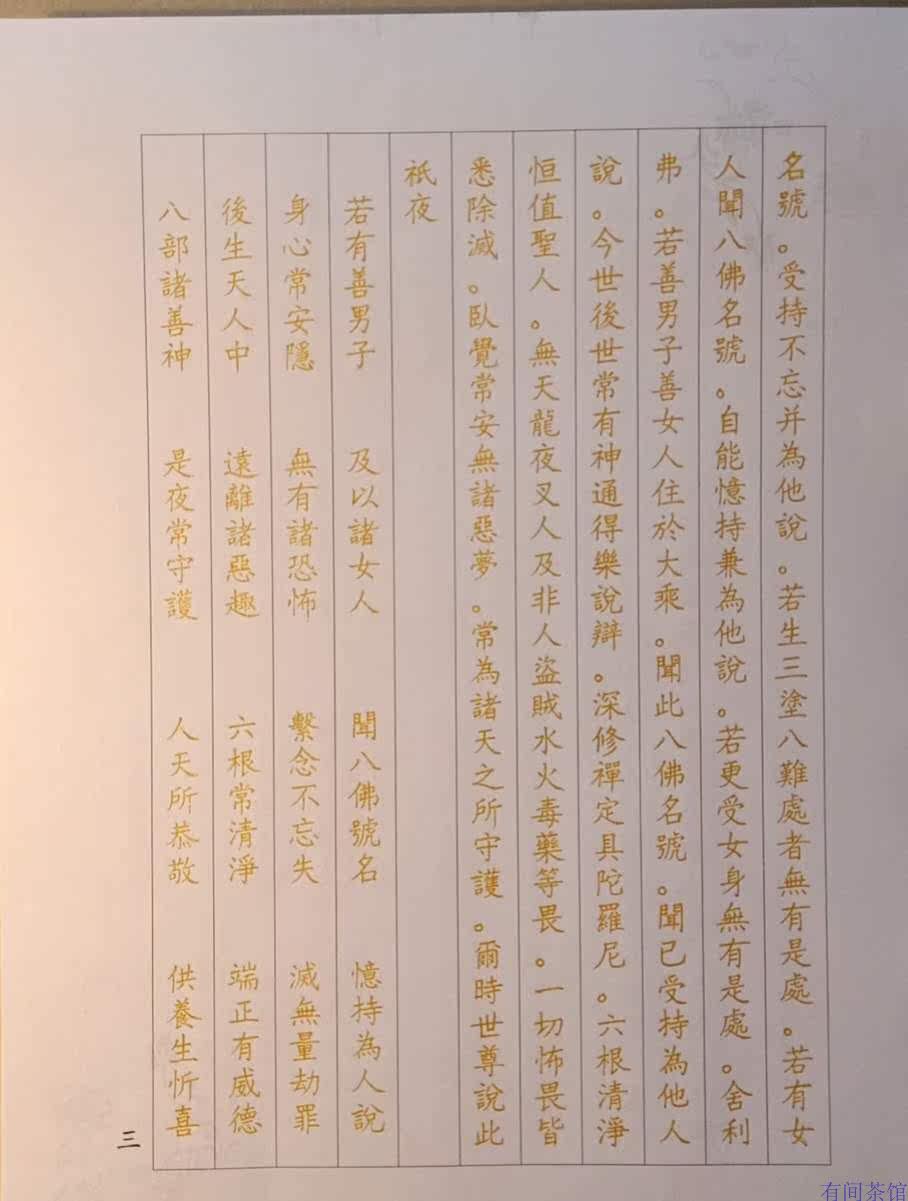 名號。受持不忘并為他說。若生三塗八難處者無有是處。若有女
人聞八佛名號。自能憶持兼為他說。若更受女身無有是處。舍利
弗。若善男子善女人住於大乘。聞此八佛名號。聞已受持為他人
說。今世後世常有神通得樂說辯。深修禪定具陀羅尼。六根清淨
恒值聖人。無天龍夜叉人及非人盜賊水火毒藥等畏。一切怖畏皆
悉除滅。臥覺常安無諸惡夢。常為諸天之所守護。爾時世尊說此
祇夜
若有善男子 及以諸女人 聞八佛號名 憶持為人說
身心常安隱 無有諸恐怖 繫念不忘失 滅無量劫罪
後生天人中 遠離諸惡趣 六根常清淨 端正有威德
八部諸善神 是夜常守護 人天所恭敬 供養生忻喜
三
有间茶馆